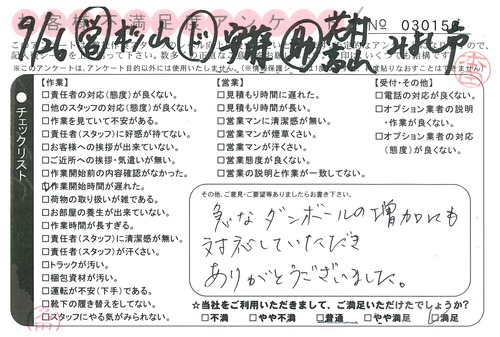 お客様不満足度アンケート
№ 030158
9/26 営 松山
※このアンケートは、アンケート目的以外には使用いたしません。
チェックリスト
【作業】
□責任者の対応(態度)が良くない。
□他のスタッフの対応(態度)が良くない。
□作業を見ていて不安がある。
□責任者(スタッフ)に好感が持てない。
□お客様への挨拶が出来ていない。
□ご近所への挨拶・気遣いが無い。
□作業開始前の内容確認がなかった。
□作業開始時間が遅れた。
□荷物の取り扱いが雑である。
□お部屋の養生が出来ていない。
□作業時間が長すぎる。
□責任者(スタッフ)に清潔感が無い。
□責任者(スタッフ)が汗くさい。
□トラックが汚い。
□梱包資材が汚い。
□運転が不安(下手)である。
□靴下の履き替えをしてない。
□スタッフにやる気がみられない。
【営業】
□見積もり時間に遅れた。
□見積もり時間が長い。
□営業マンに清潔感が無い。
□営業マンが煙草くさい。
□営業マンが汗くさい。
□営業態度が良くない。
□営業の説明と作業が一致してない。
【受付・その他】
□電話の対応が良くない。
□オプション業者の説明
・作業が良くない。
□オプション業者の対応
(態度)が良くない。
その他、ご意見・ご要望等ありましたらお書き下さい。
急なダンボールの増加にも
対応していただき
ありがとうございました。
☆当社をご利用いただきまして、ご満足いただけたでしょうか?
□不満 □やや不満 □普通 □やや満足 □満足